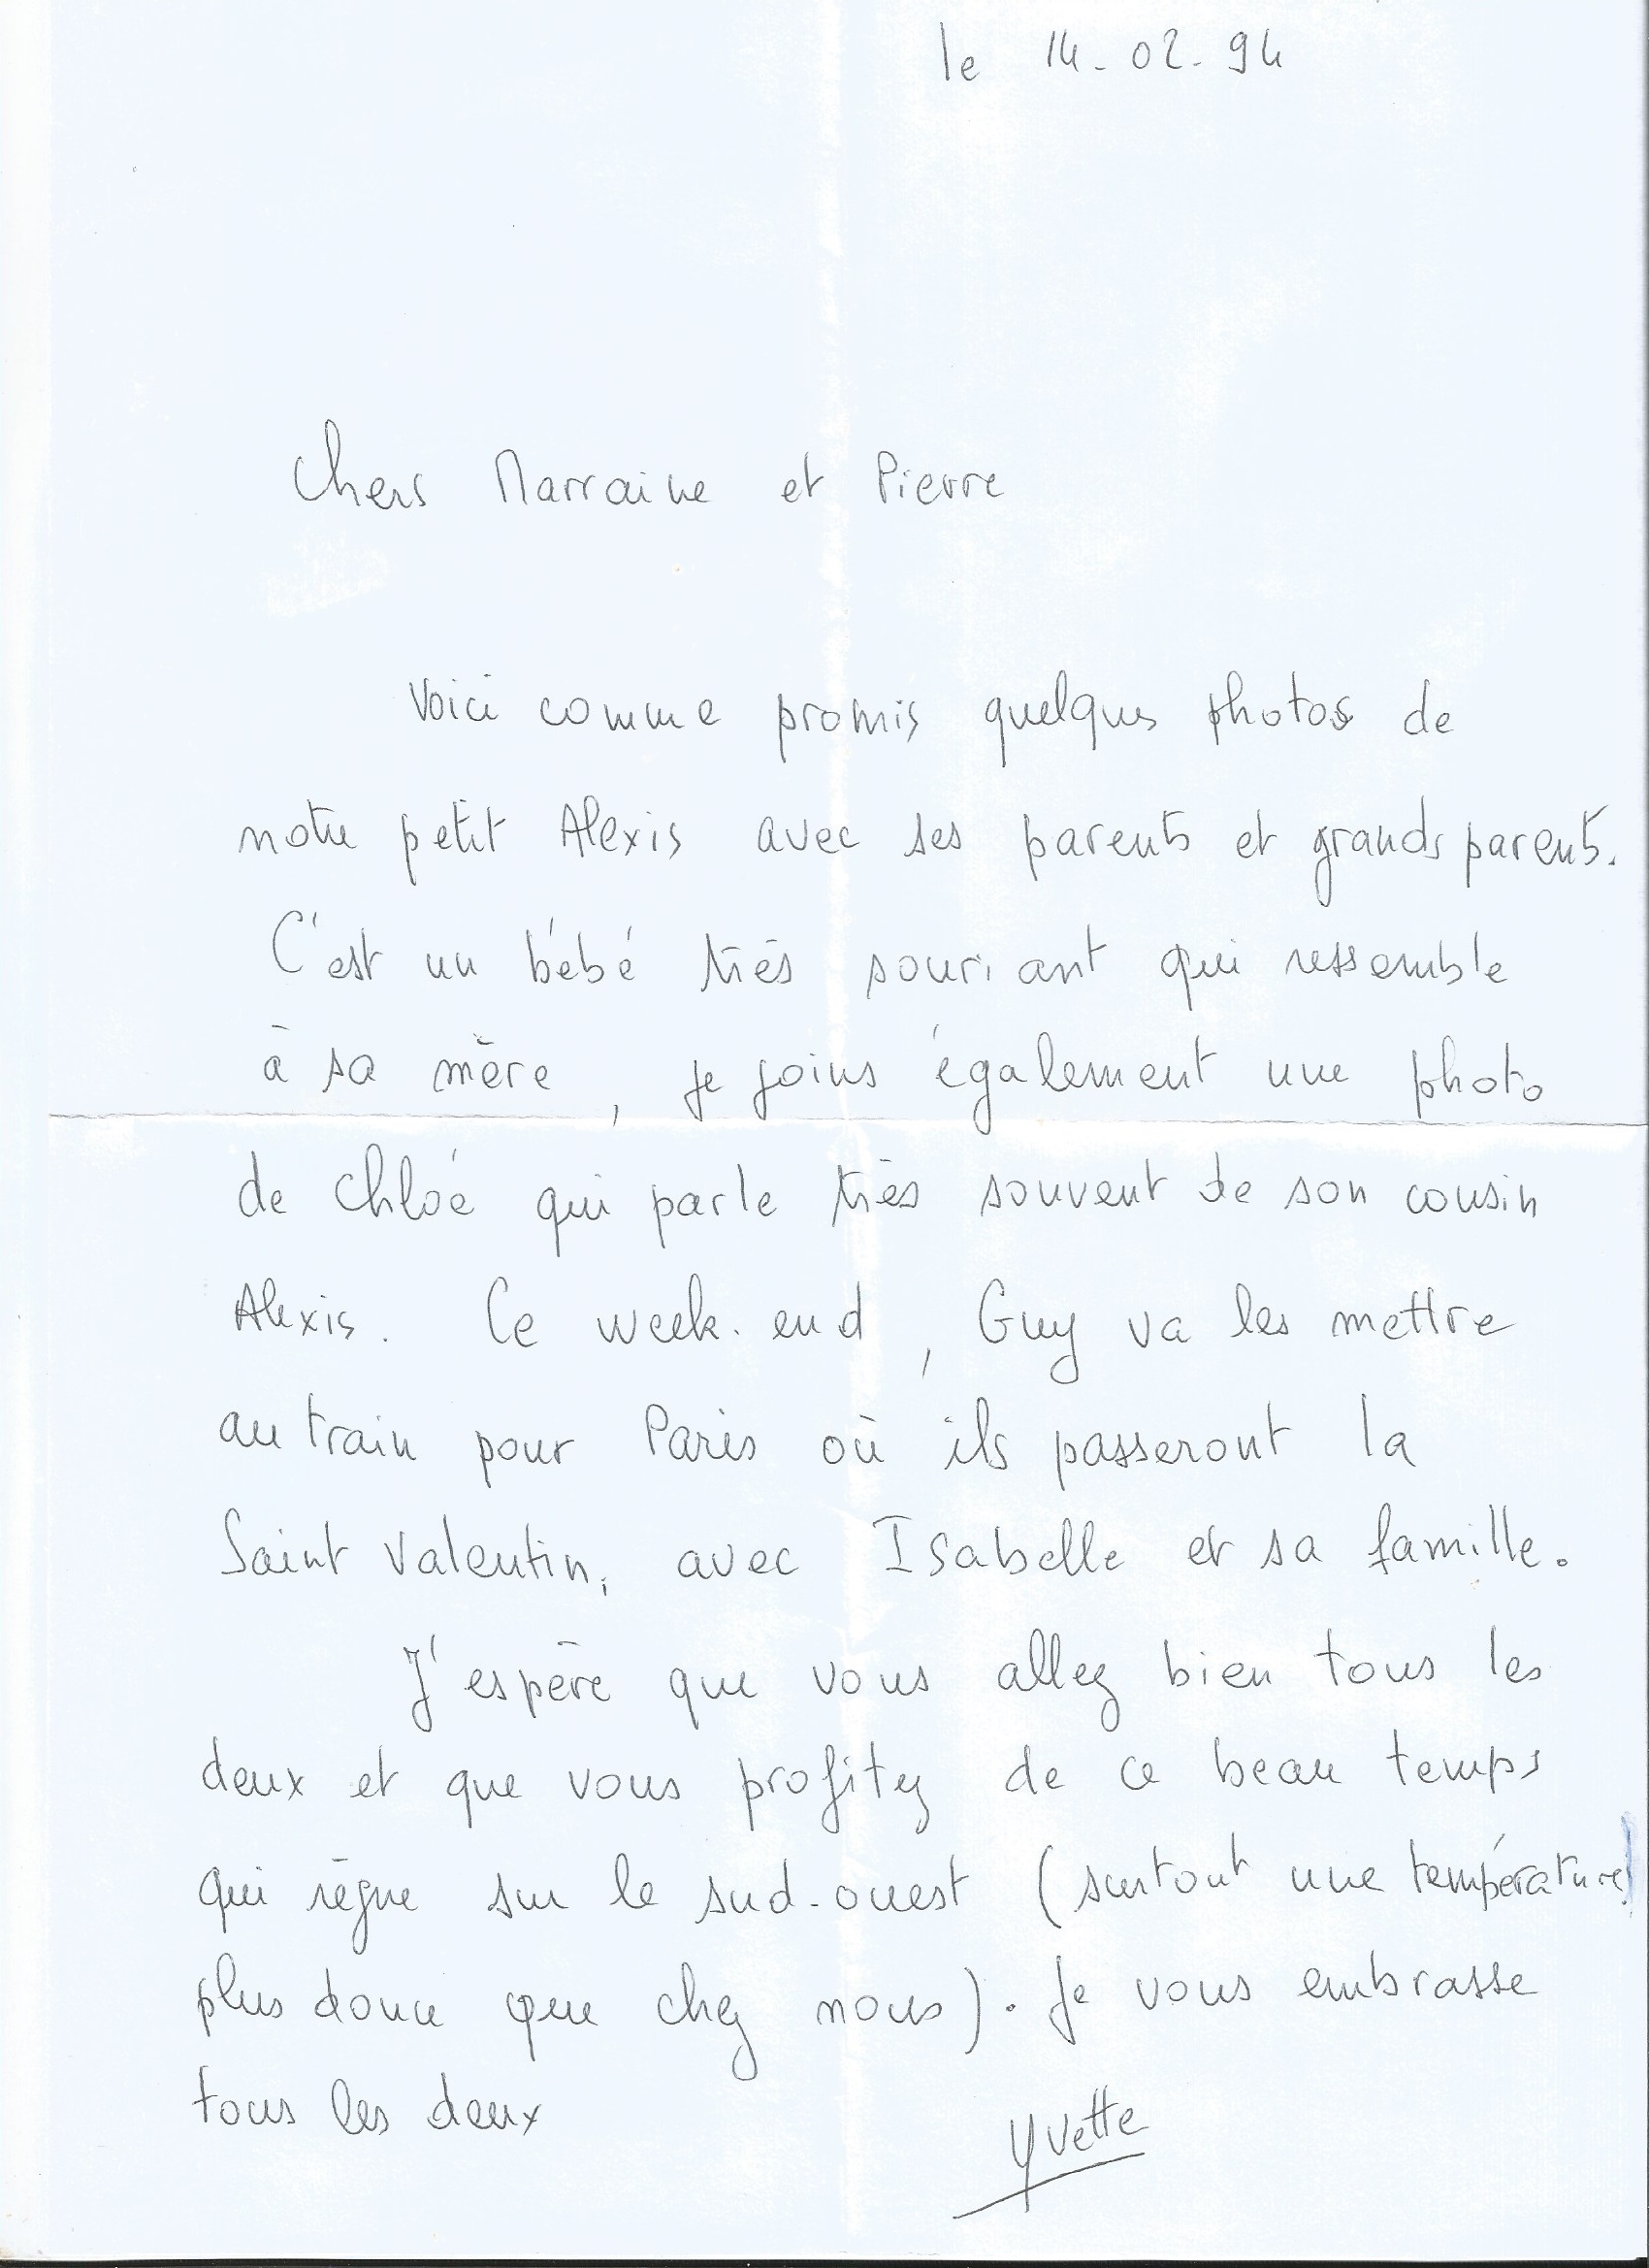 le 14.02.94
Chers Marraine et Pierre
Voici comme promis quelques photos de
notre petit Alexis avec ses parents et grands parents.
C'est un bébé très souriant qui ressemble
à sa mère, je joins également une photo
de Chloé qui parle très souvent de son cousin
Alexis. Ce week-end, Guy va les mettre
au train pour Paris où ils passeront la
Saint Valentin, avec Isabelle et sa famille.
J'espère que vous allez bien tous les
deux et que vous profitez de ce beau temps
qui règne sur le sud-ouest (surtout une température
plus douce que chez nous). Je vous embrasse
tous les deux
Yvette